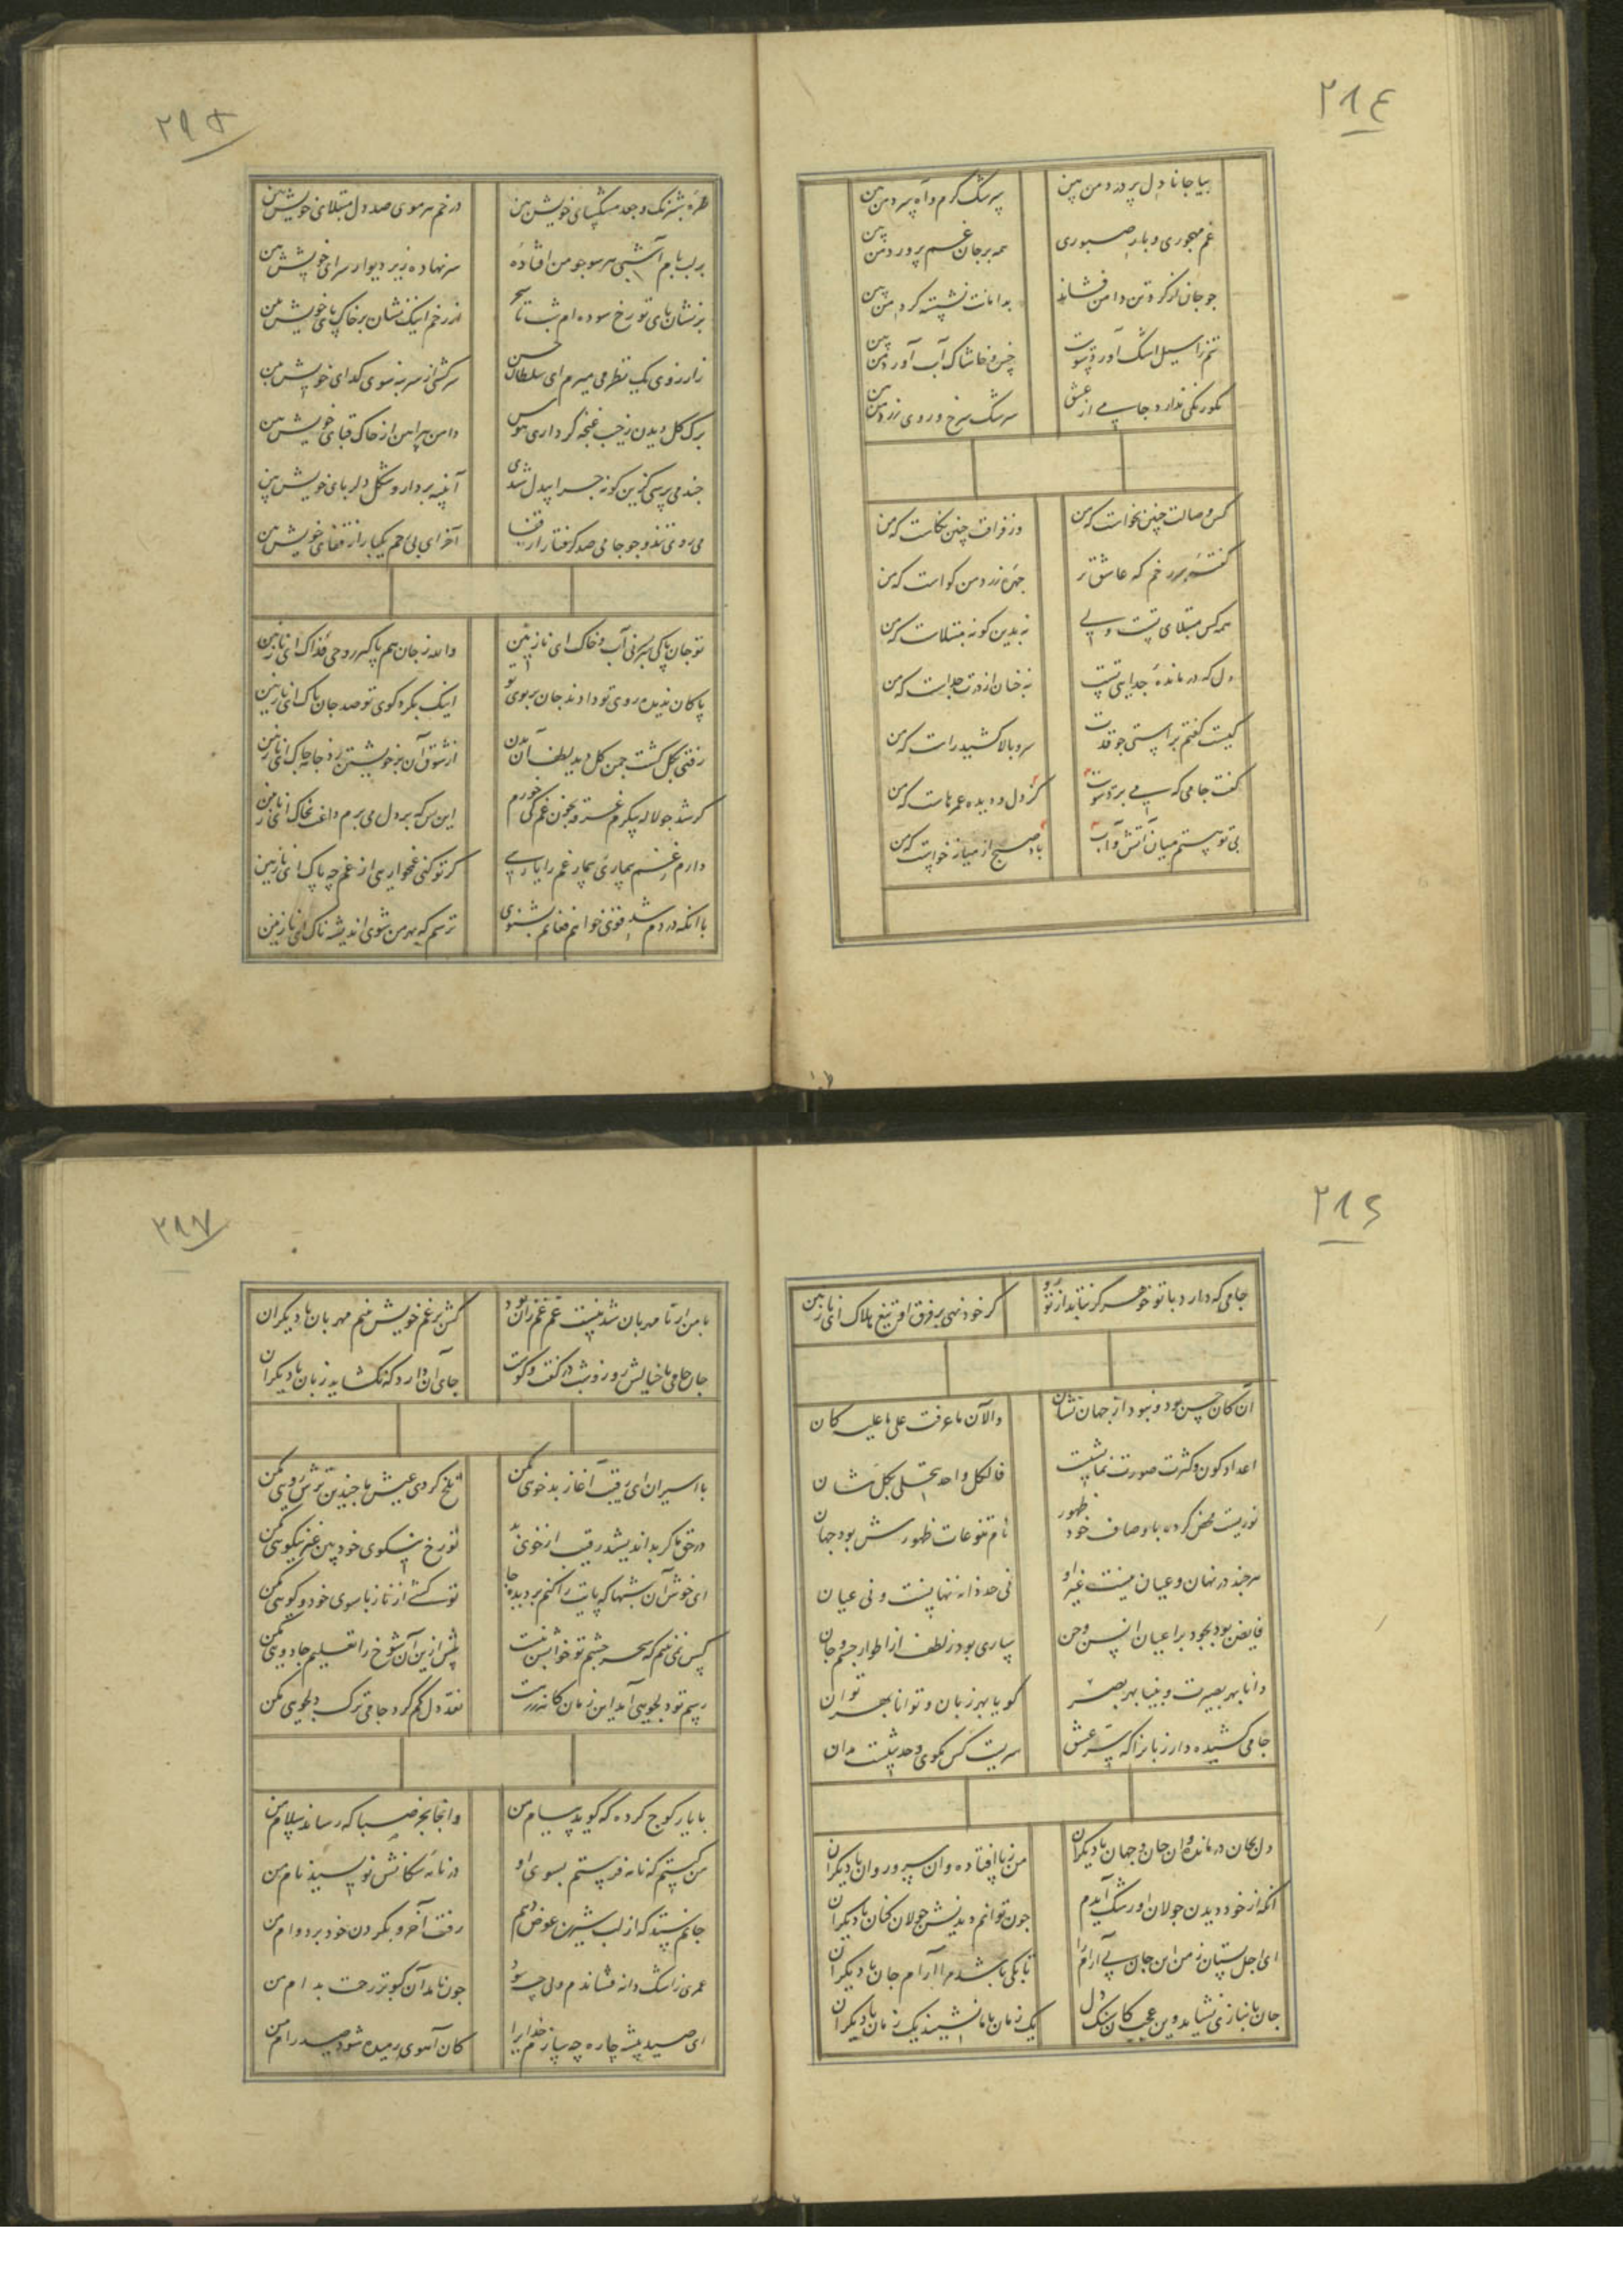 ۲۸۴
بیا جانا دل پر درد من بین
پرسشک کرم و آه سرد من بین
غم مهجوری و بار صبوری
همه بر جان غم پرورد من بین
جو جان از کرد تن دامن فشاند
بدامانت نشسته کرد من بین
تنم را سیل اشک آورد سویت
خس و خاشاک آب آورد من بین
نکو رنکی ندارد جامی از عشق
سرشک سرخ و روی زرد من بین
کس وصالت چنین نخواست که من
وز فراقت چنین نکاست که من
کفتهٔ بر درخم که عاشق تر
جهرهٔ زرد من کواست که من
همه کس مبتلای تست ولی
نه بدین کونه مبتلاست که من
دل که درماندهٔ جدایی تست
نه جنان از درت جداست که من
کیست کفتم براستی جو قدت
سرو بالا کشید راست که من
کفت جامی که پی برد سویت
کرد دل و دیده عمرهاست که من
بی تو هستم میان آتش و آب
باد صبح از میانه خواست که من
۲۸۵
طرهٔ شبرنک و جعد مشکسای خویش بین
در خم هر موی صد دل مبتلای خویش بین
بر لب بام آ شبی هر سو جو من افتادهٔ
سر نهاده زیر دیوار سرای خویش بین
بر نشان پای تو رخ سوده ام شب تا سحر
از رخم اینک نشان بر خاک پای خویش بین
ز آرزوی یک نظر می میرم ای سلطان حسن
سرکشی از سر بنه سوی کدای خویش بین
برک کل دیدن ز جیب غنجه کر داری هوس
دامن پیراهن از جاک قبای خویش بین
جند می پرسی کزین کونه جرا بیدل شدی
آینه بردار و شکل دلربای خویش بین
می روی تند و جو جامی صد کرفتار از قفا
آخر ای بی رحم یکبار از قفای خویش بین
تو جان پاکی سربسر نی آب و خاک ای نازنین
والله ز جان هم پاکتر روحی فداک ای نازنین
پاکان ندیده روی تو دادند جان بر بوی تو
اینک بکرد کوی تو صد جان پاک ای نازنین
رفتی بکل کشت جمن کل دید لطف آن بدن
از شوق آن بر خویشتن زد جامه جاک ای نازنین
کر شد جو لاله پیکرم غرقه بخون غم کی خورم
این بس که بر دل می برم داغت بخاک ای نازنین
دارم ز غم بیماری بیمار غم را یاریی
کر تو کنی غمخواریی از غم چه باک ای نازنین
با آنکه دردم شد قوی خواهم فغانم بشنوی
ترسم که بهر من شوی اندیشه ناک ای نازنین
۲۸۶
جامی که دارد با تو خو هرکز نتابد از تو رو
کر خود نهی بر فرق او تیغ هلاک ای نازنین
آن کان حسن بود و نبود از جهان نشان
والآن ما عرفت علی ما علیه کان
اعداد کون و کثرت صورت نمایشیست
فالکل واحد یتجلی بکل شان
نوریست محض کرده باوصاف خود ظهور
نام تنوعات ظهورش بود جهان
هر جند در نهان و عیان نیست غیر او
فی حد ذاته نه نهانست و نی عیان
فایض بود بجود بر اعیان انس و جن
ساری بود ز لطف از اطوار جسم و جان
دانا بهر بصیرت و بینا بهر بصر
کویا بهر زبان و توانا بهر توان
جامی کشیده دار زبان را که سر عشق
سریست کس مکوی و حدیثیست مدان
دل بجان درمانده وان جان و جهان با دیکران
من ز پا افتاده وان سرو روان با دیکران
آنکه از خود دیدن جولان او رشک آیدم
جون توانم دیدنش جولان کنان با دیکران
ای اجل بستان ز من این جان بی آرام را
تا بکی باشد مرا آرام جان با دیکران
جان ببازی نشاید وین عجب کان سنک دل
یک زمان با ما نشیند یک زمان با دیکران
۲۸۷
با من ار نا مهربان شد نیست غم غم زان بود
کش بر غم خویش بینم مهربان با دیکران
جان جامی با خیالش روز و شب در کفت و کوست
جای آن دارد که نکشاید زبان با دیکران
با اسیران ای رقیب آغاز بد خویی مکن
تلخ کردی عیش ما جندین ترش رویی مکن
در حق ما کر بد اندیشد رقیب از خوی بد
تو رخ نیکوی خود بین غیر نیکویی مکن
ای خوش آن شبها که پایت را کنم بر دیده جا
تو کشی از ناز پا سوی خود و کویی مکن
کس نمی بینم که سحر چشم تو خوابش نبست
بیش ازین آن شوخ را تعلیم جادویی مکن
رسم تو دلجویی آمد این زمان کانه درت
نقد دل کم کرد جامی ترک دلجویی مکن
با یار کوج کرده که کوید پیام من
وانجا بجز صبا که رساند سلام من
من کیستم که نامه فرستم بسوی او
در نامهٔ سکانش نویسید نام من
جانم ستد که از لب شیرین عوض دهم
رفت آخر و بکردن خود برد وام من
عمری ز اشک دانه فشاندم ولی چه سود
جون نامد آن کبوتر رحمت بدام من
ای صید پیشه چاره چه سازم خدایرا
کان آهوی رمیده شود صید رام من